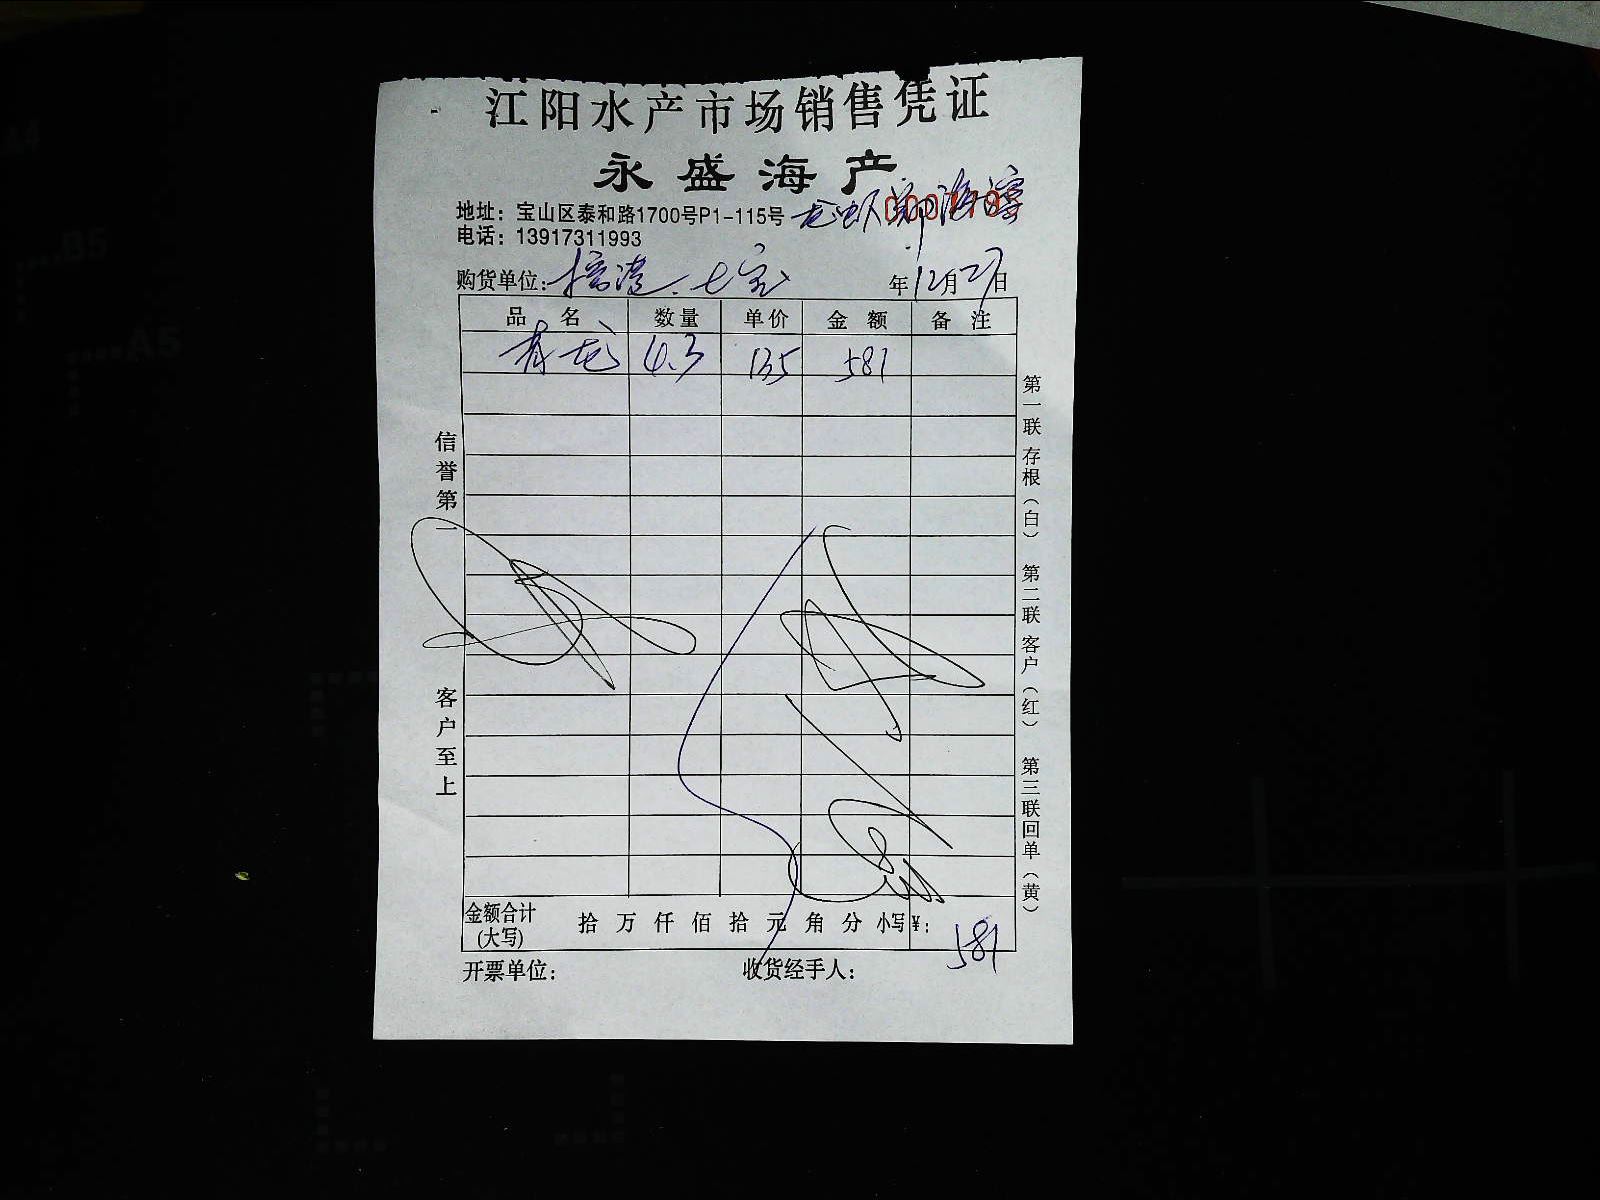 江阳水产市场销售凭证
永盛海产
地址：宝山区泰和路1700号P1-115号 龙虾 郑海滨
电话：13917311993
购货单位： 七宝 年12月27日
品名 数量 单价 金额 备注
青龙 4.3 135 581
信誉第一 客户至上
第一联存根（白） 第二联客户（红） 第三联回单（黄）
金额合计（大写） 拾万仟佰拾元角分 小写¥： 581
开票单位： 收货经手人：